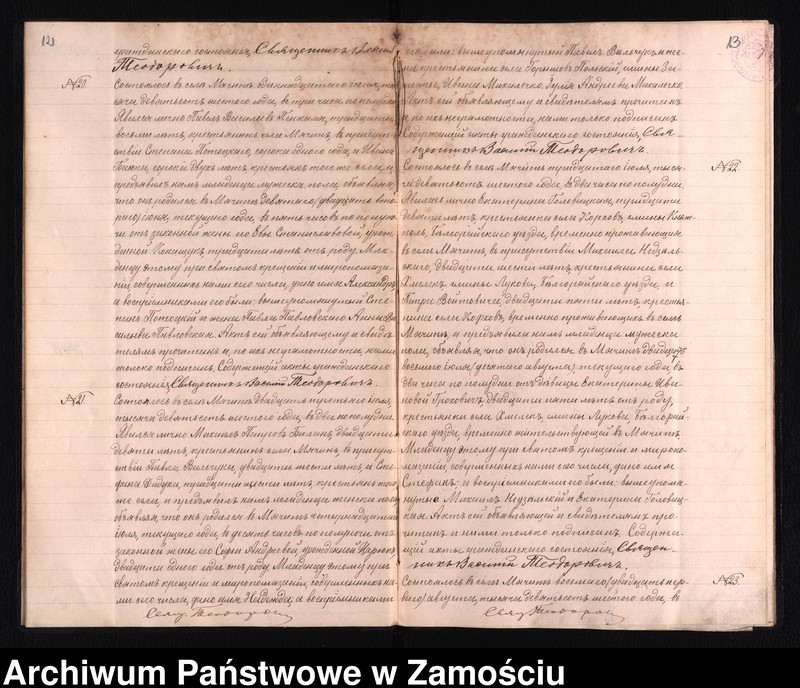 12
гражданскаго состоянія, Священникъ Василій
Теодоровичъ.
№20.
Состоялось въ селѣ Мячинъ
тысячи девятьсотъ шестого года, въ три часа по полудни
Явился лично Павелъ Васильевъ тридцати
восьми лѣтъ, крестьянинъ села Мячинъ, въ присут-
ствіи Степана Потоцкаго, сорока одного года, и Ивана
сорока двухъ лѣтъ крестьянъ того же села, и
предъявилъ намъ младенца мужеска пола, объявляя,
что онъ родился въ Мячинъ девятаго (двадцать вто-
раго) іюня, текущаго года, въ пять часовъ по полуно-
чи отъ законной жены его Евы Станиславовой, урож-
денной тридцати лѣтъ отъ роду. Мла-
денцу этому при святомъ крещеніи и миропомаза-
ніи совершенныхъ нами сего числа, дано имя Александръ
а воспріемниками его были: вышеупомянутый Сте-
панъ Потоцкій и жена Павла Павловскаго Анна Ва-
сильева Павловская. Актъ сей объявляющему и свидѣ-
телямъ прочитанъ и, по ихъ неграмотности, нами
только подписанъ. Содержащій акты гражданскаго
состоянія, Священникъ Василій Теодоровичъ.
№21.
Состоялось въ селѣ Мячинъ двадцать третьяго іюля,
тысячи девятьсотъ шестого года, въ два по полудни.
Явился лично Михаилъ Петровъ двадцати
девяти лѣтъ, крестьянинъ села Мячинъ, въ присут-
ствіи Павла Вальчука, двадцати шести лѣтъ, и Сте-
фана тридцати шести лѣтъ, крестьянъ того
же села, и предъявилъ намъ младенца женска пола
объявляя, что онъ родился въ Мячинъ четырнадцатаго
іюля, текущаго года, въ десять часовъ по полуночи отъ
законной жены его Софіи Андреевой урожденной
двадцати одного года отъ роду. Младенцу этому при
святомъ крещеніи и миропомазаніи, совершенныхъ на-
ми сего числа, дано имя Надежда, а воспріемниками
Свящ. Теодоров
13
его были: вышеупомянутый Павелъ Вальчукъ и же-
на крестьянина села Горышовъ Польскій, гмины За-
мостье, Ивана Михалечко, Юлія Андреева Михалечко
Актъ сей объявляющему и свидѣтелямъ прочитанъ
и, по ихъ неграмотности, нами только подписанъ
Содержащій акты гражданскаго состоянія, Свя-
щенникъ Василій Теодоровичъ.
№22.
Состоялось въ селѣ Мячинъ тридцатаго іюля, тыся-
чи девятьсотъ шестого года, въ два часа по полудни.
Явилась лично Екатерина Боловицкая, тридцати
девяти лѣтъ крестьянка села Корховъ, гмины Княж-
поль, Белгорайскаго уѣзда, временно проживающая
въ селѣ Мячинъ, въ присутствіи Михаила Недзѣль-
скаго, двадцати шести лѣтъ крестьянина села
Хмелекъ гмины Луковы, Белгорайскаго уѣзда, и
Петра Войтовича, двадцати пяти лѣтъ крестья-
нина села Корховъ, временно проживающихъ въ селѣ
Мячинъ, и предъявила намъ младенца мужеска
пола, объявляя, что онъ родился въ Мячинъ двадцать
восьмого іюля (десятаго августа) текущаго года, въ
два часа по полудни отъ дѣвицы Екатерины Ива-
новой двадцати пяти лѣтъ отъ роду,
крестьянки села Хмелекъ, гмины Луковы Белгорай-
скаго уѣзда, временно жительствующей въ Мячинъ.
Младенцу этому при святомъ крещеніи и миропо-
мазаніи, совершенныхъ нами сего числа, дано имя
а воспріемниками его были: вышеупомя-
нутые Михаилъ Недзѣльскій и Екатерина Боловиц-
кая. Актъ сей объявляющей и свидѣтелямъ про-
читанъ и нами только подписанъ. Содержа-
щій акты гражданскаго состоянія, Священ-
никъ Василій Теодоровичъ.
№23.
Состоялось въ селѣ Мячинъ восьмого (двадцать пер-
ваго) августа, тысячи девятьсотъ шестого года, въ
Свящ. Теодоров
Archiwum Państwowe w Zamościu